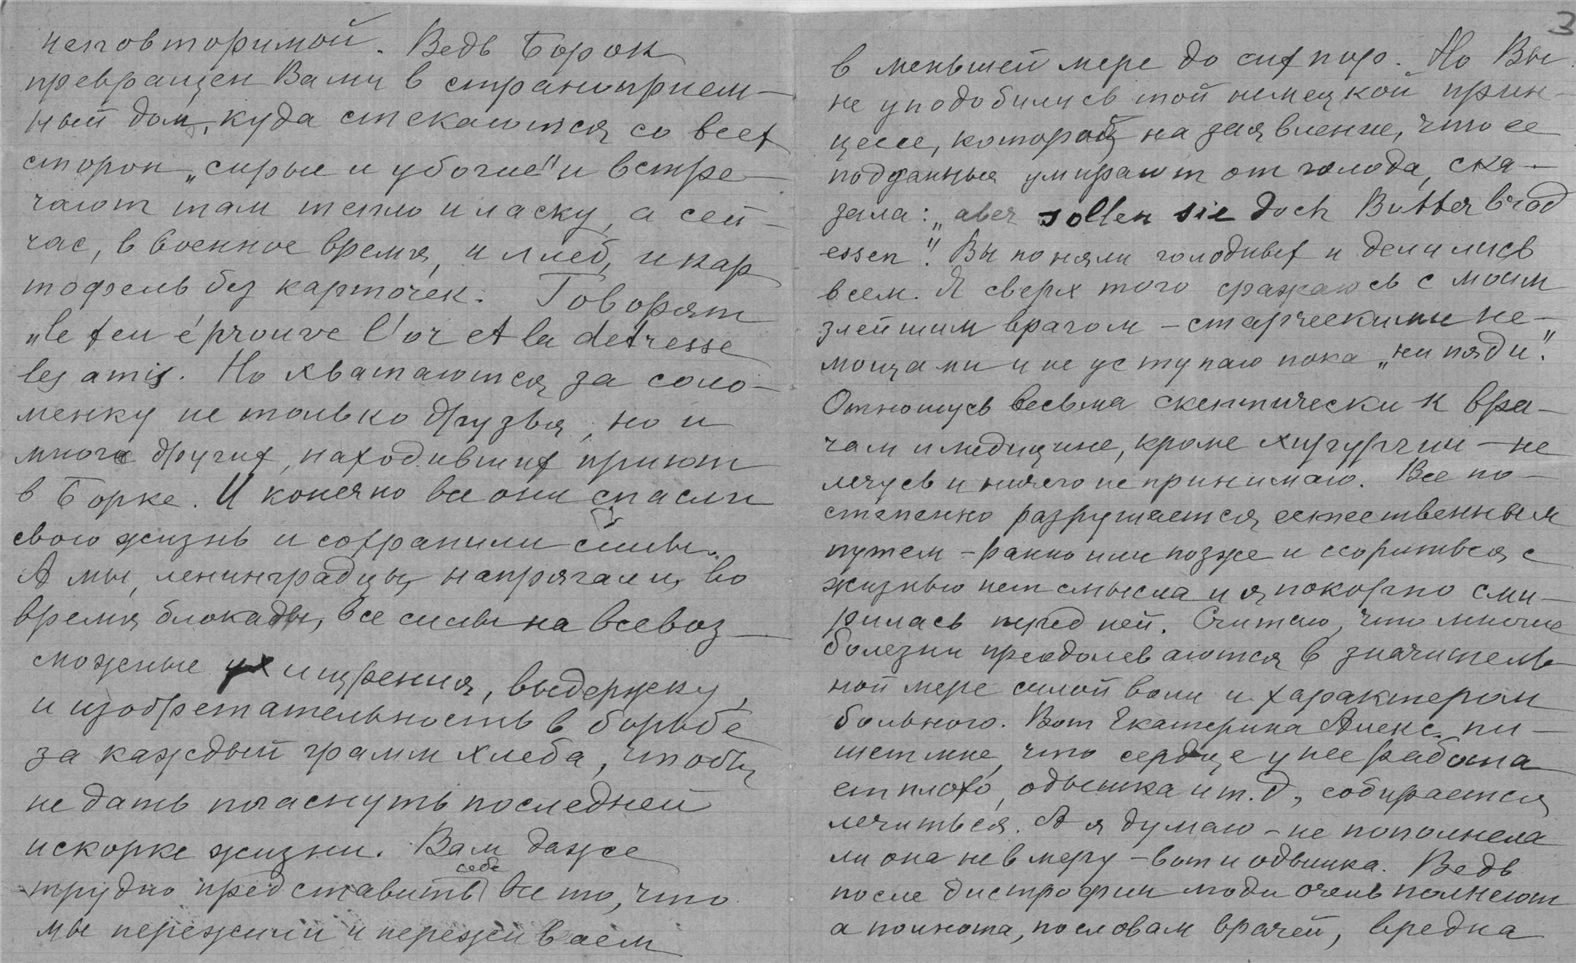 неповторимой. Ведь Борок
превращен Вами в странноприем-
ный дом, куда стекаются со всех
сторон „сирые и убогие" и встре-
чают там тепло и ласку, а сей-
час, в военное время, и хлеб, и кар
тофель без карточек. Говорят
„le feu éprouve l'or et la détresse
les amis. Но хватаются за соло-
менку не только друзья, но и
много других, находивших приют
в Борке. И конечно все они спасли
свою жизнь и сохранили силы.
А мы, ленинградцы, напрягали, во
время блокады, все силы на всевоз-
можные ухищрения, выдержку,
и изобретательность в борьбе
за каждый грамм хлеба, чтобы
не дать погаснуть последней
искорке жизни. Вам даже
трудно представить себе все то, что
мы пережили и переживаем
3
в меньшей мере до сих пор. Но Вы
не уподобились той немецкой прин-
цессе, которой на заявление, что ее
подданные умирают от голода, ска-
зала: „aber sollen sie doch Butterbrod
essen". Вы поняли голодных и делились
всем. Я сверх того сражаюсь с моим
злейшим врагом - старческими не-
мощами и не уступаю пока „ни пяди".
Отношусь весьма скептически к вра-
чам и медицине, кроме хирургии - не
лечусь и ничего не принимаю. Все по-
степенно разрушается естественным
путем - рано или позже и ссориться с
жизнью нет смысла и я покорно сми-
рилась перед ней. Считаю, что многие
болезни преодолеваются в значитель-
ной мере силой воли и характером
больного. Вот Екатерина Алекс. пи-
шет мне, что сердце у нее работа
ет плохо, одышка и т.д., собирается
лечиться. А я думаю - не пополнела
ли она не в меру - вот и одышка. Ведь
после дистрофии люди очень полнеют
а полнота, по словам врачей, вредна